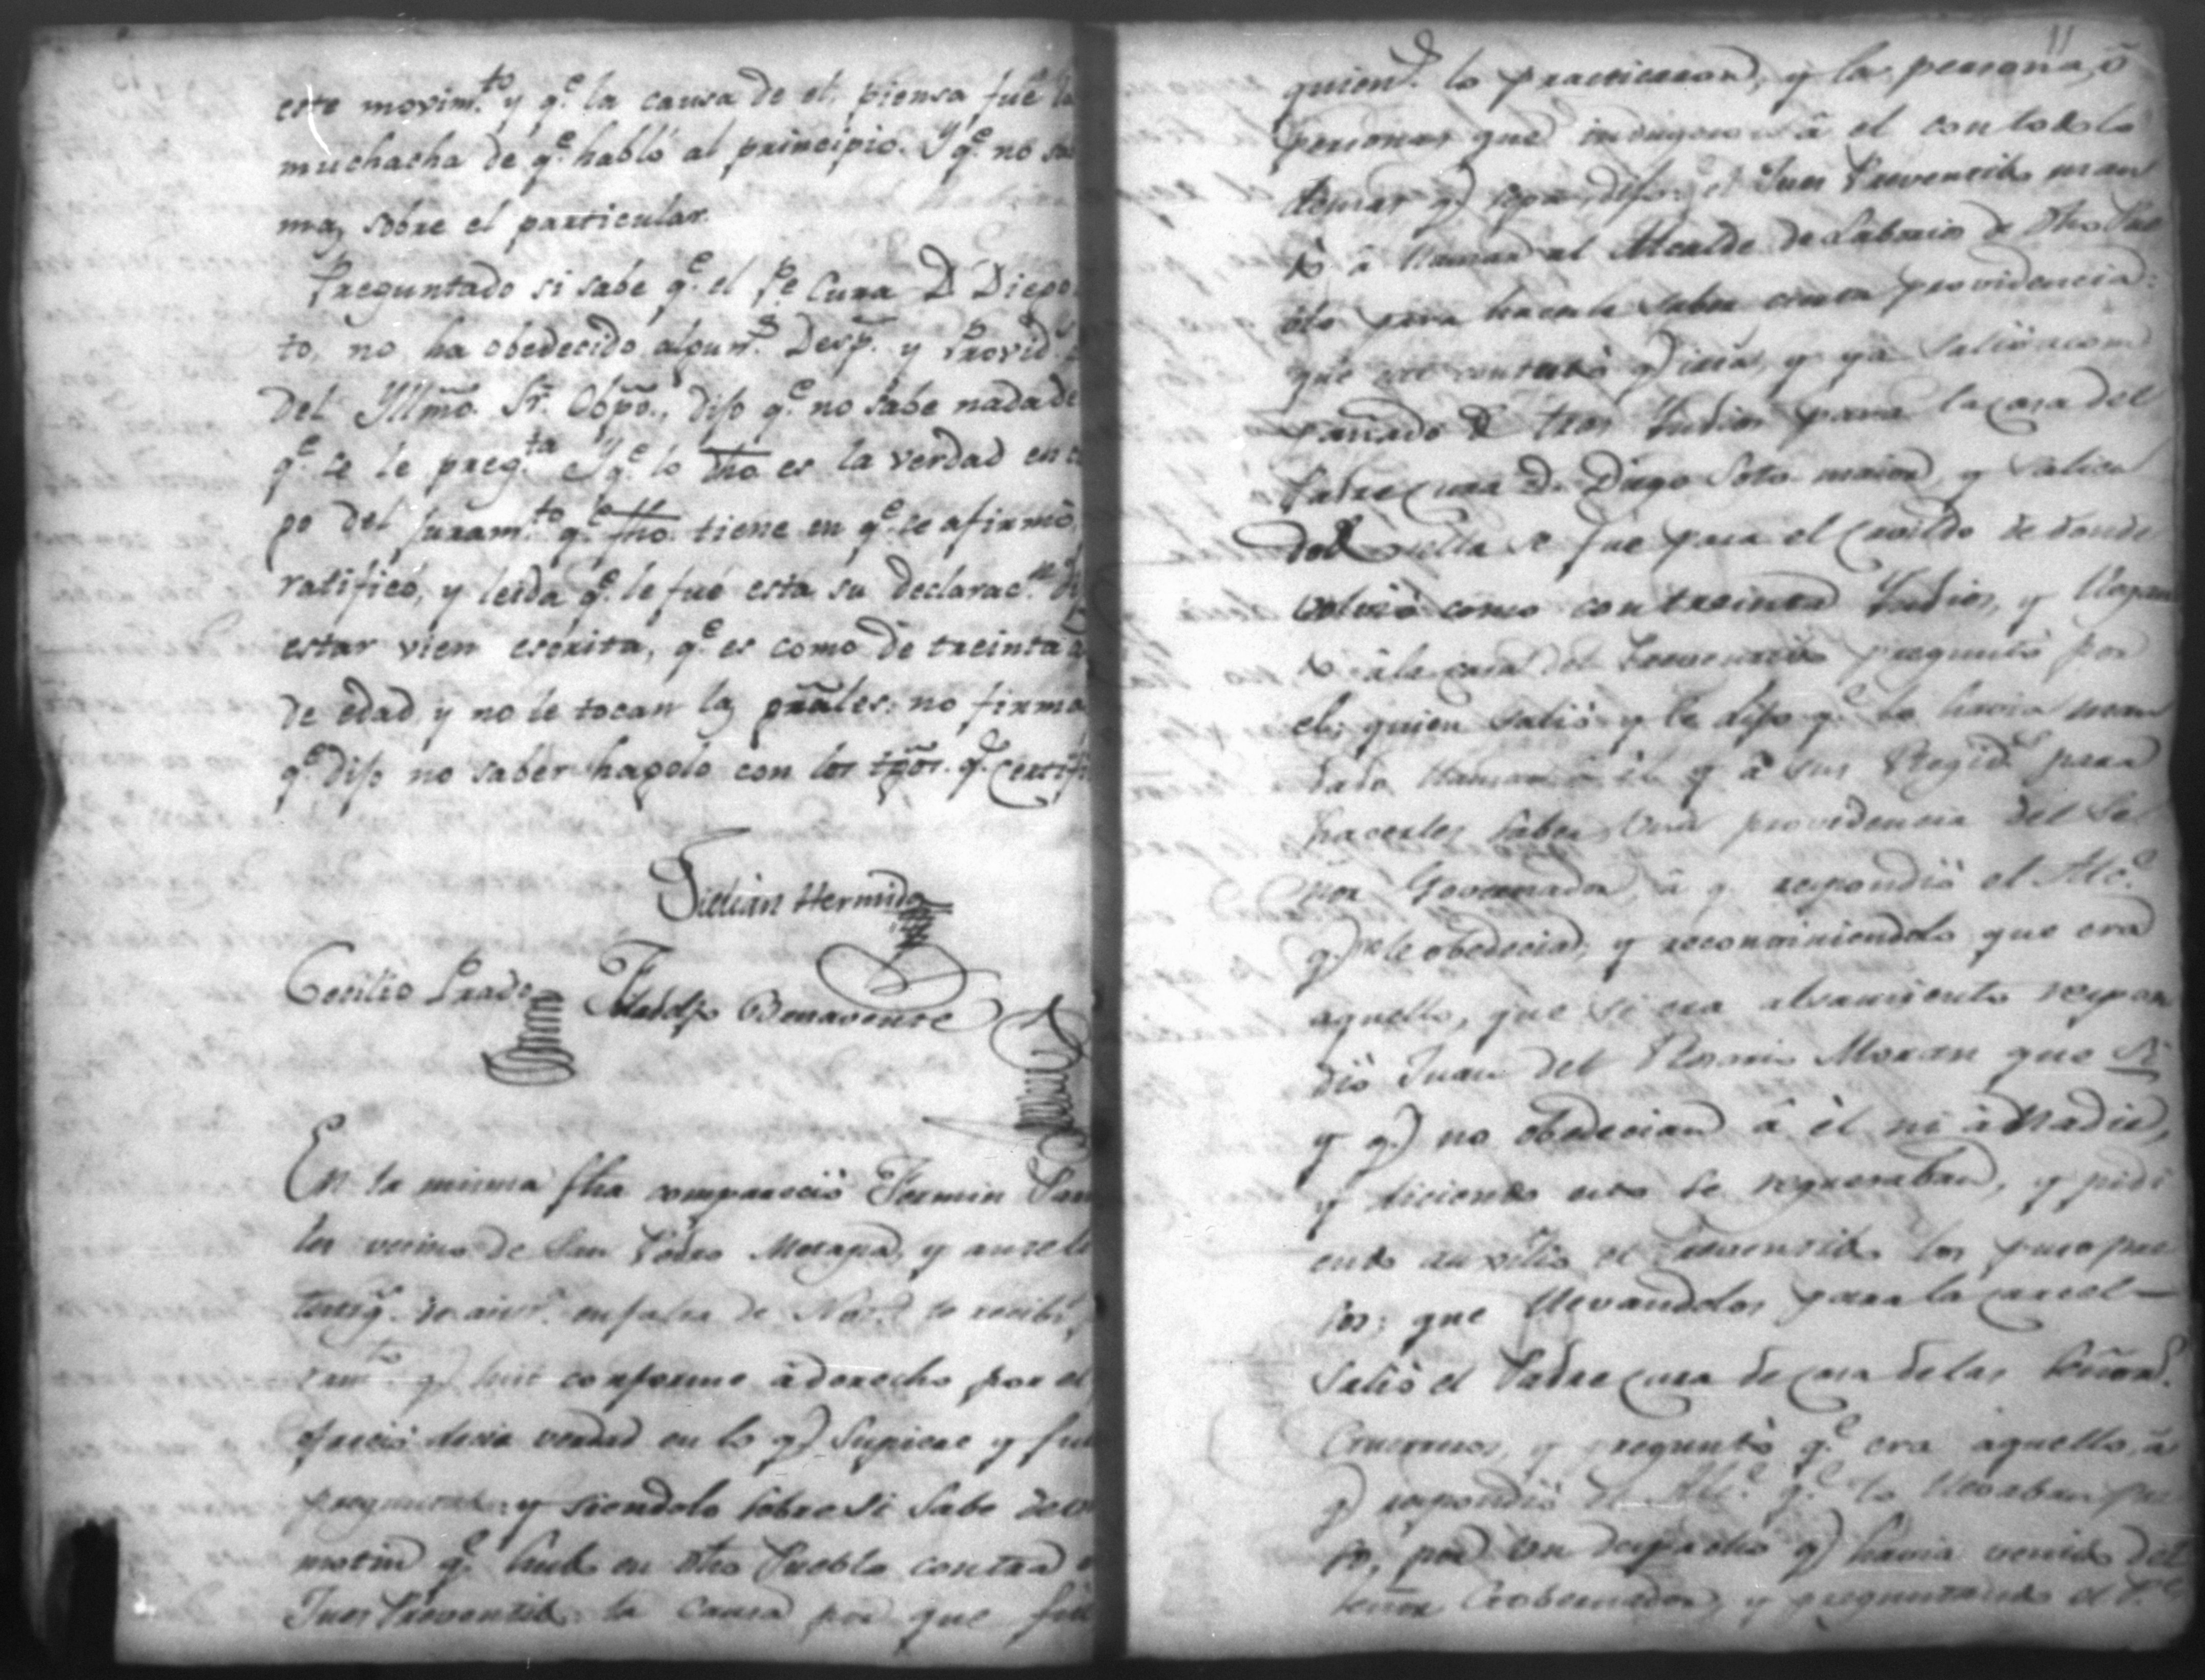 este movim.to y q.e la causa de el, piensa fué la
muchacha de q.e habló al principio. Y q.e no sa
mas sobre el particular.
Preguntado si sabe q.e el P.e Cura D Diego
to, no ha obedecido algun.s Desp.s y Provid.s
del Yllmõ. Sr. Obpõ., dijo q.e no sabe nada de
q.e se le preg.ta Y q.e lo dho es la verdad en
po del juram.to q.e fho tiene en q.e se afirmó,
ratificó, y leida q.e le fué esta su declarac.n
estar vien escrita, q.e es como de treinta a
de edad, y no le tocan las grãles: no firmo
q.e dijo no saber hagolo con los tgõs. q.e Certifi
Julián Hermida
Cecilio Prado Adolfo Benavente
En la misma fha compareció Fermin
los vecino de San Pedro Metapa, y ante
test.s q.e de aist.a en falta de Not.o le recibi
ram.to q.e hizo conforme â derecho por el
ofreció decir verdad en lo q.e supiere y fue
preguntado: y siendolo sobre si sabe de
motin q.e hubo en dho Pueblo contra
Juez Preventibo: la causa por que fue
11
quien.s lo practicaron, y la persona, ô
personas que indugeron â el con todo lo
demas q.e sepa, dijo: el Juez Preventibo man
dó â llamar al Alcalde de Laborios de dho Pue
blo para hacerle saber cierta providencia:
que ere contestó q.e iria, y ya salió acom
pañado de tres Yndios para la casa del
Padre Cura D. Diego Soto-maior, y salien
do de ella se fue para el Cavildo de donde
volvió como con treinta Yndios, y llegan
do â la casa del Preventivo preguntó por
el; quien salió y le dijo q.e lo havia man
dado llamar â él y â sus Regid.s para
hacerles saber una providencia del Se
ñor Governador, â q.e respondió el Alc.e
q.e no le obedecia, y reconviniendolo que era
aquello, que si era alsamiento respon
dió Juan del Rosario Moran que si
y q.e no obedecian â él ni â Nadie,
y diciendo esto se regueraban, y pidi
endo auxilio el Preventibo los puso pre
sos; que llevandolos para la carcel
salió el Padre Cura de casa de las Señoras
Guerreros, y preguntó q.e era aquello, â
q.e respondió el Alc.e q.e lo llevaban pre
so, por un despacho q.e havia venido del
Señor Gobernador, y preguntando el P.e